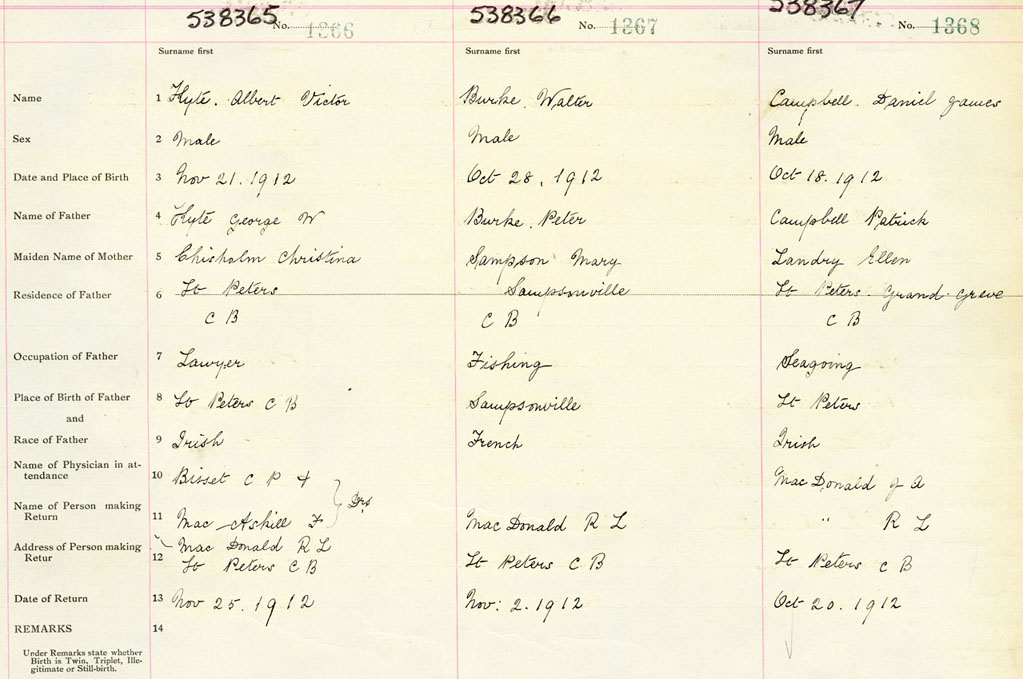 538365 No. 1366 538366 No. 1367 538367 No. 1368
Surname first Surname first Surname first
Name 1 Kyte. Albert Victor Burke. Walter Campbell. Daniel James
Sex 2 Male Male Male
Date and Place of Birth 3 Nov 21. 1912 Oct 28. 1912 Oct 18. 1912
Name of Father 4 Kyte George W Burke. Peter Campbell Patrick
Maiden Name of Mother 5 Chisholm Christina Sampson Mary Landry Ellen
Residence of Father 6 St Peters Sampsonville St Peters. Grand Greve
C B C B C B
Occupation of Father 7 Lawyer Fishing Seagoing
Place of Birth of Father 8 St Peters C B Sampsonville St Peters
and
Race of Father 9 Irish French Irish
Name of Physician in at-
tendance 10 Bisset C P & MacDonald J A
Name of Person making
Return 11 Mac Askill F } Drs MacDonald R L " R L
Address of Person making Mac Donald R L
Retur 12 St Peters C B St Peters C B St Peters C B
Date of Return 13 Nov 25. 1912 Nov: 2. 1912 Oct 20. 1912
REMARKS 14
Under Remarks state whether
Birth is Twin, Triplet, Ille-
gitimate or Still-birth.